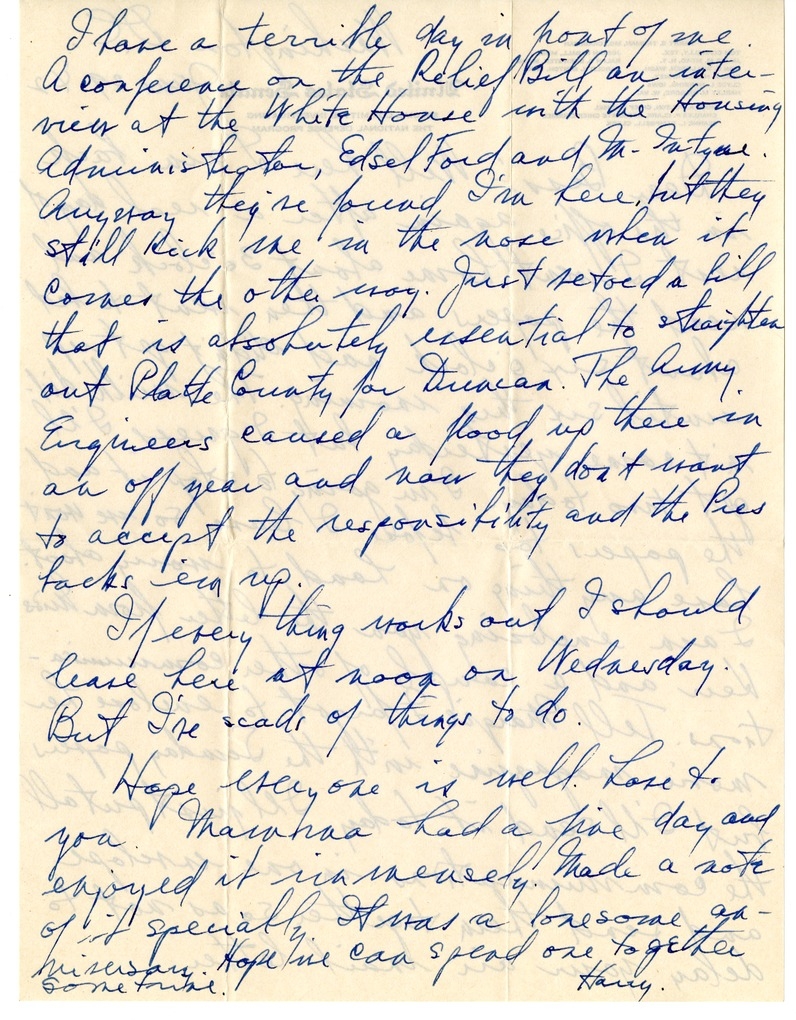 I have a terrible day in front of me.
A conference on the Relief Bill an inter-
view at the White House with the Housing
Administrator, Edsel Ford and McIntyre.
Anyway they've found I'm here, but they
still kick me in the nose when it
comes the other way. Just vetoed a bill
that is absolutely essential to straighten
out Platte County for Duncan. The Army
Engineers caused a flood up there in
an off year and now they don't want
to accept the responsibility and the Pres
backs 'em up.
If every thing works out I should
leave here at noon on Wednesday.
But I've scads of things to do.
Hope everyone is well. Love to
you. Mamma had a fine day and
enjoyed it immensely. Made a note
of it specially. It was a lonesome an-
niversary. Hope we can spend one together
sometime. Harry.